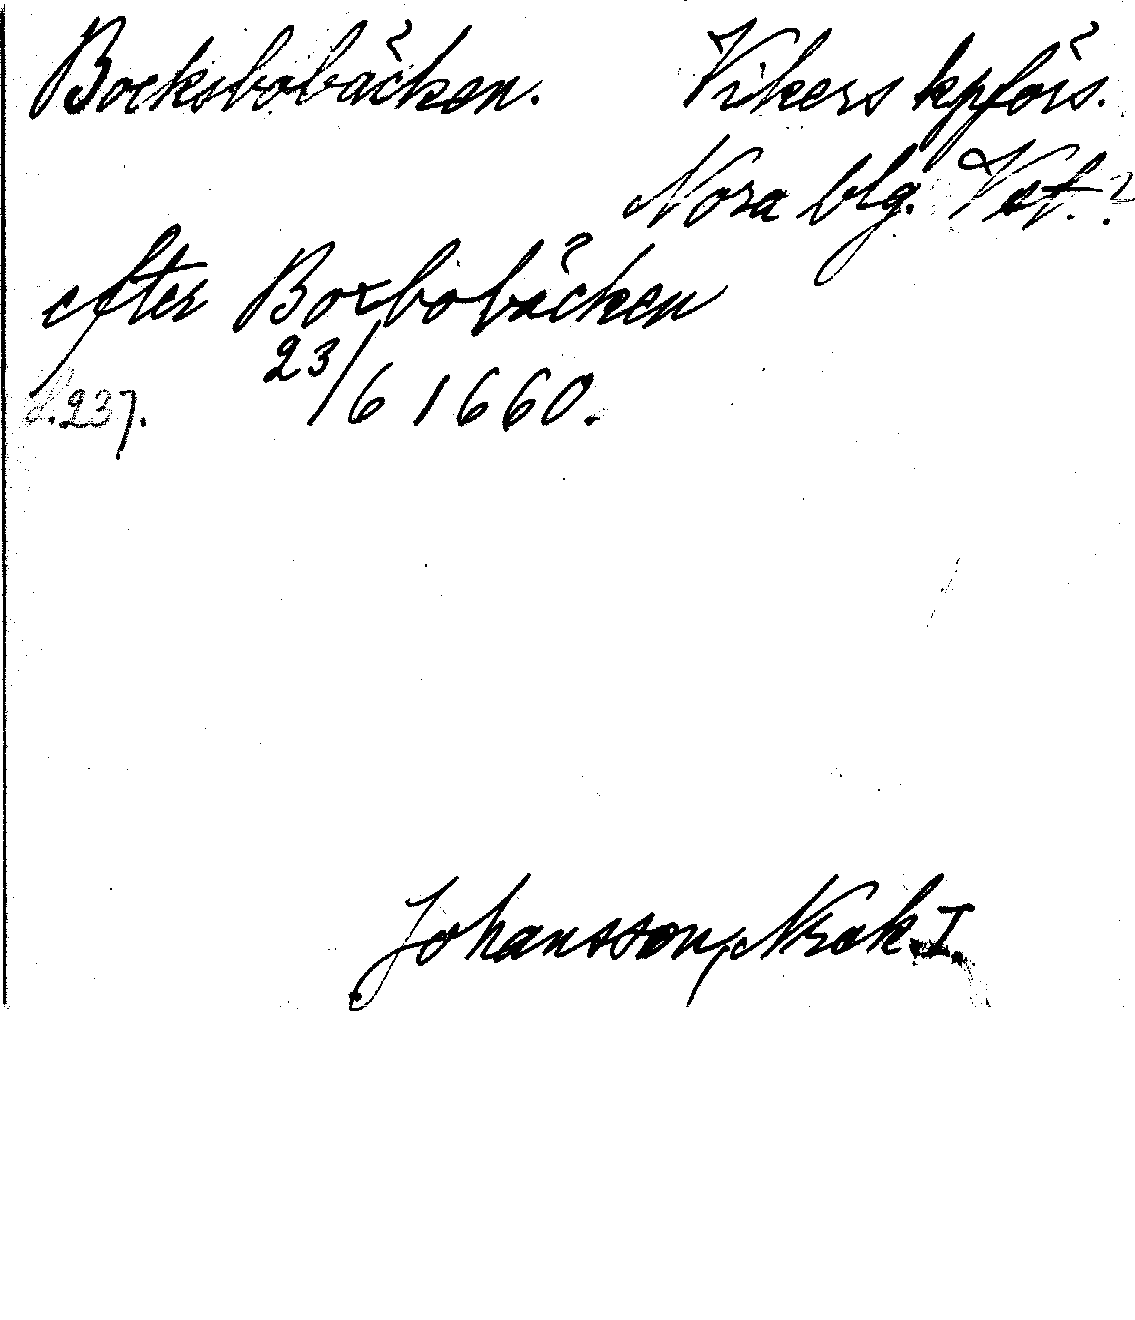 Bocksbobäcken. Vikers kpförs.
Nora blg. Vst. ?
efter Boxbobäcken
23/6 1660.
s. 237.
Johansson, Norak I.